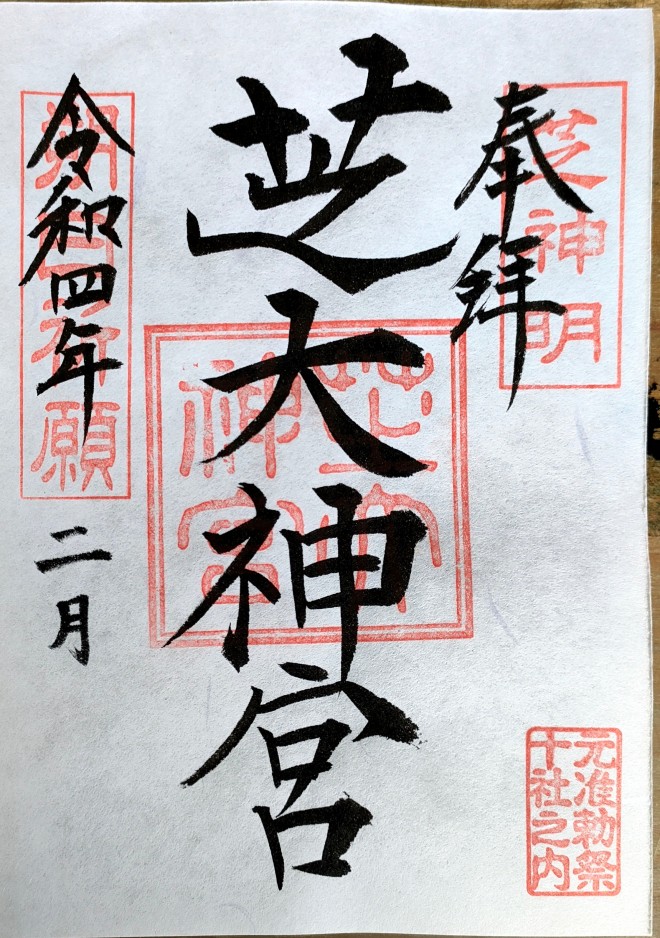 奉拝
芝神明
芝大神宮
芝大神宮
令和四年
二月
朔日祈願
元准勅祭
十社之内